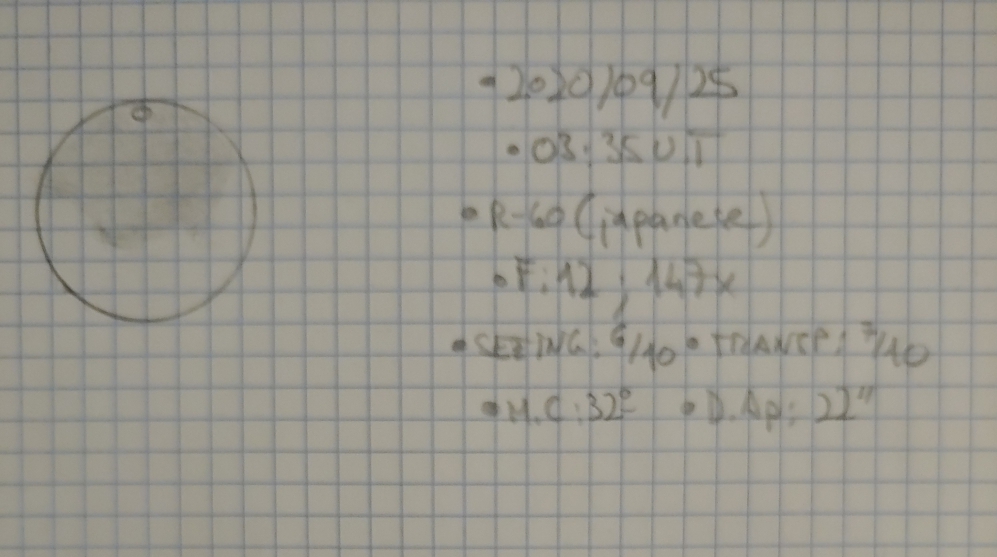 • 2020/09/25
• 03:35 UT
• R-60 (japanese)
• F:12 ; 147x
• SEEING: 6/10 • TRANSP: 7/10
• M.C:32° • D.Ap: 22"